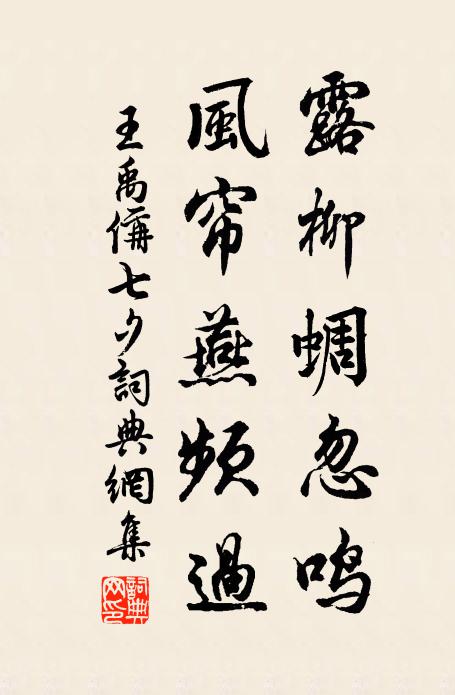 露柳蜩忽鳴
風帘燕頻過
王禹偁七夕詞典網集
詞典網印